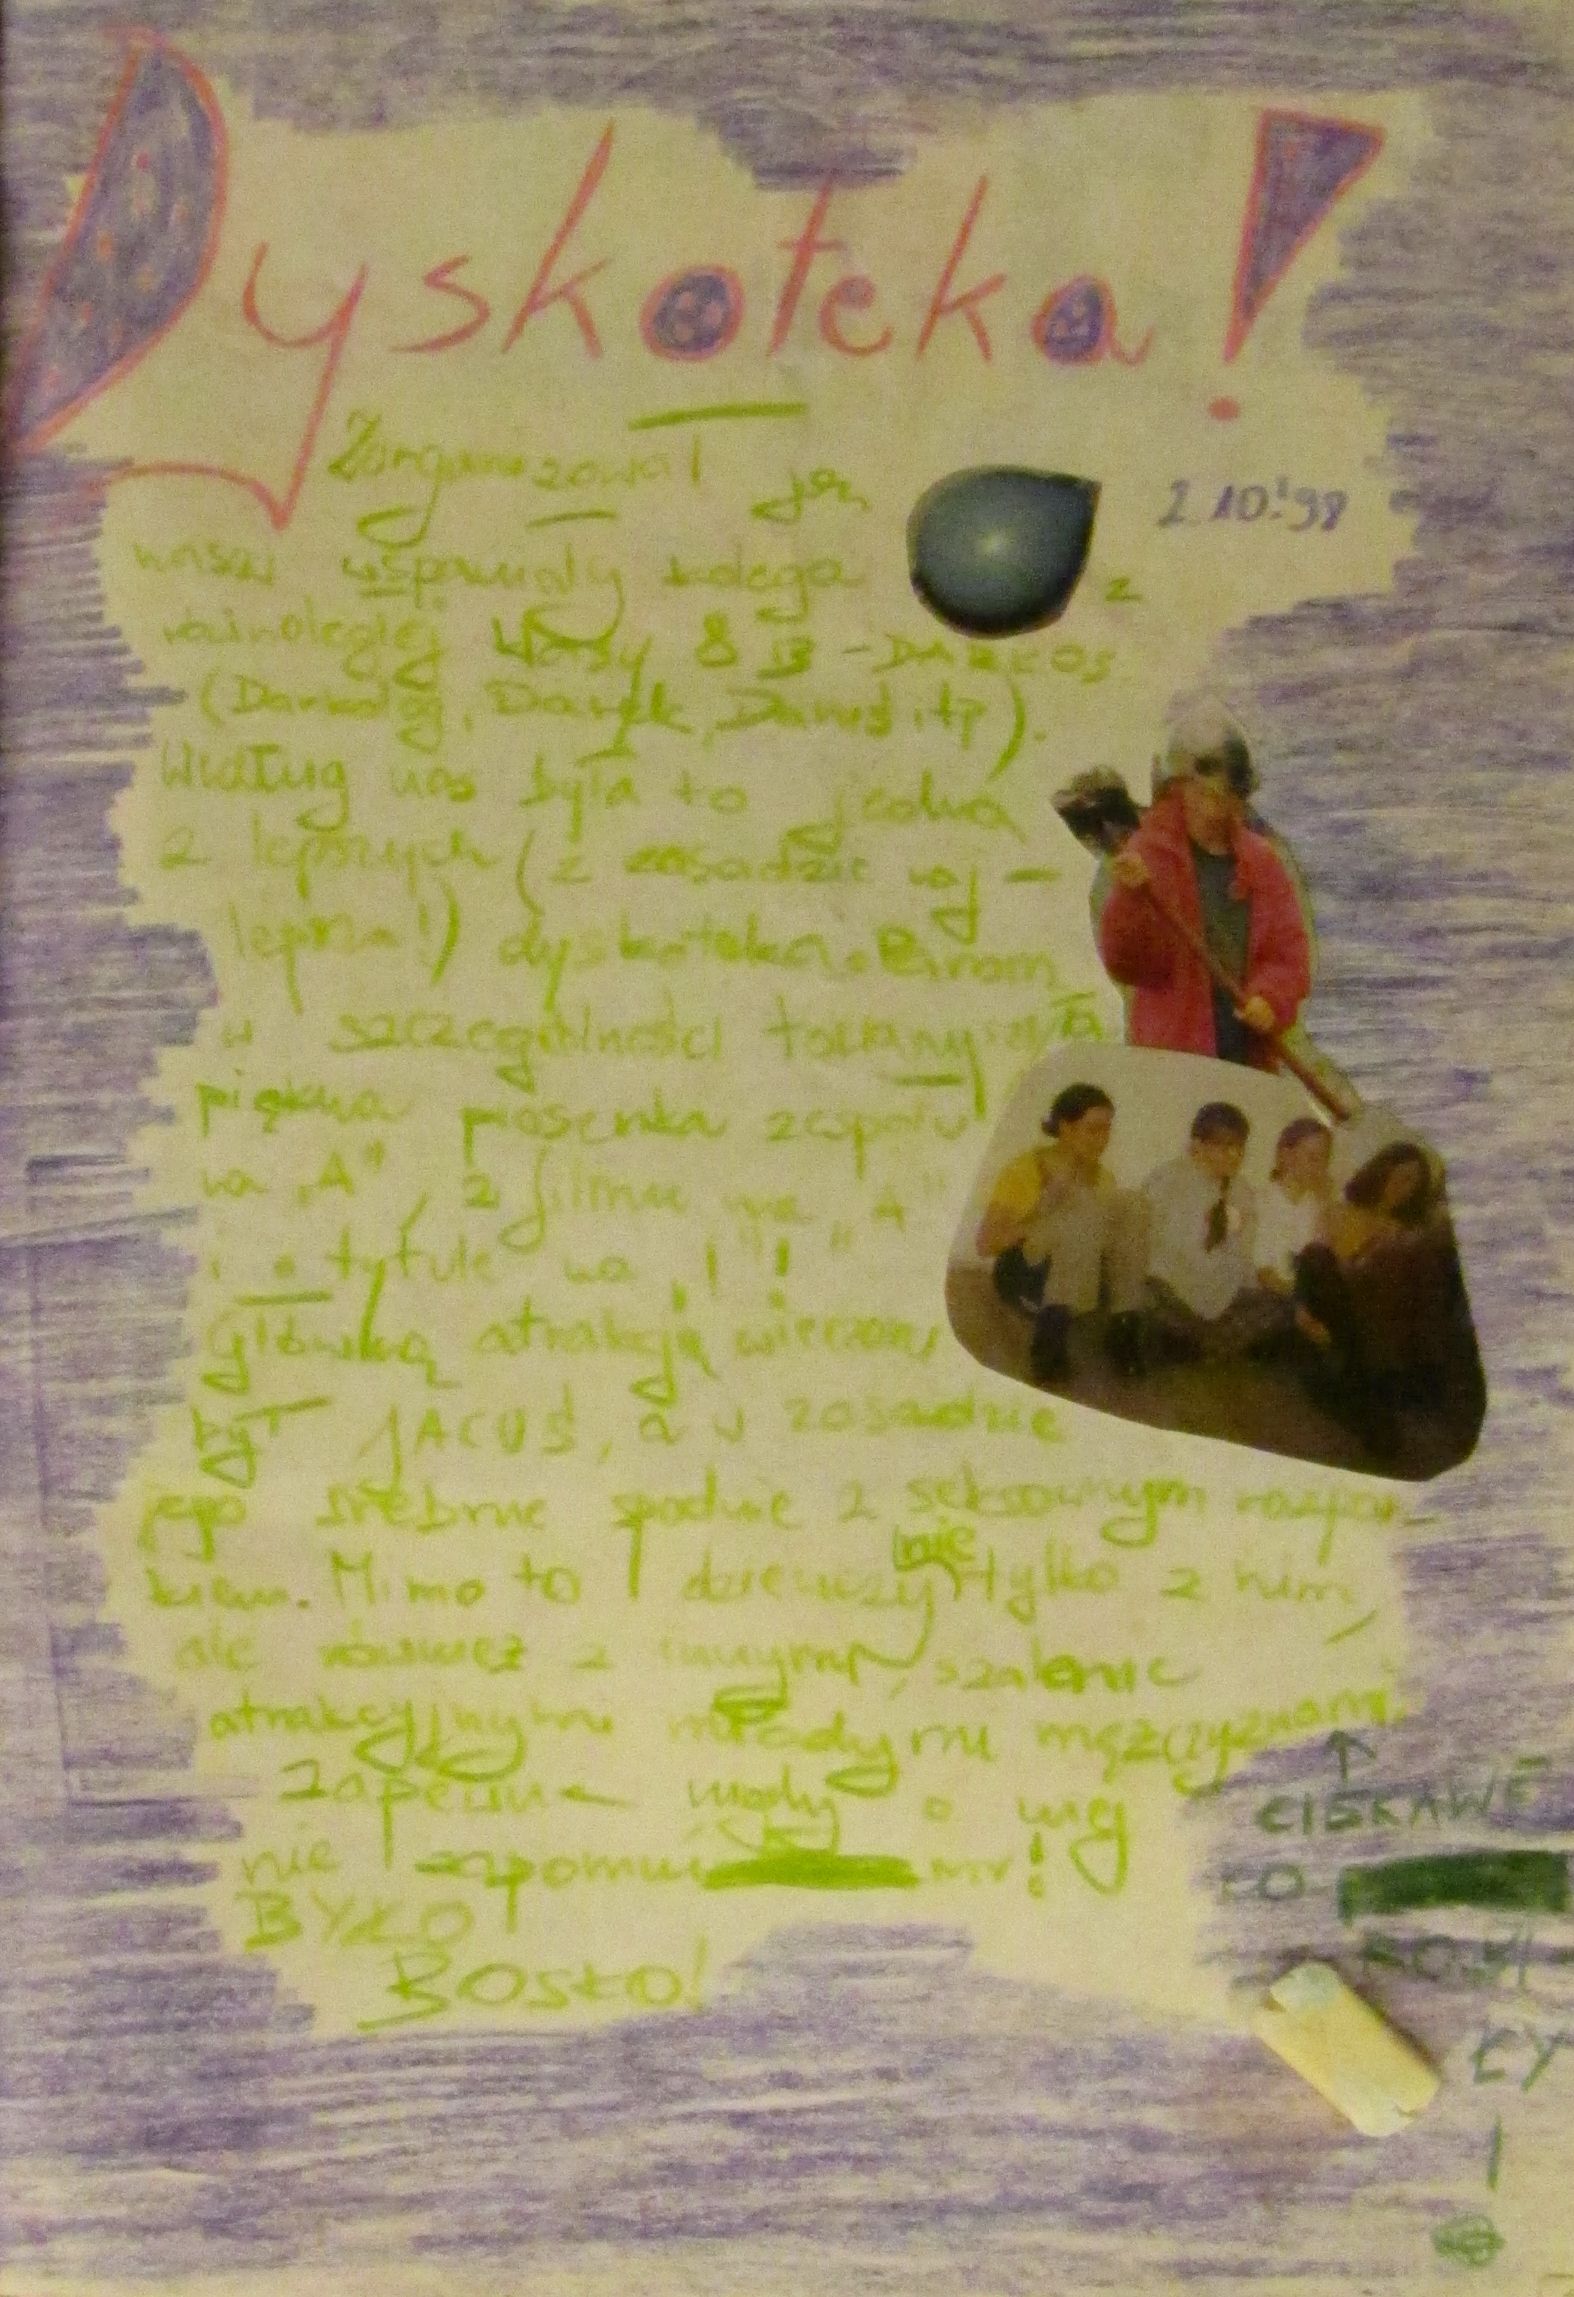 Dyskoteka!
Zorganizował ją
2.10.'98
nasz wspaniały kolega z
równoległej klasy 8 B - DARKOS
(Darkoś, Darek, Dariuś itp).
Według nas była to jedna
z lepszych (w zasadzie naj-
lepsza!) dyskoteka.
w szczególności towarzyszyła
piękna piosenka zespołu
na „A", z filmu na „A"
i o tytule na „I"!
Główną atrakcją wieczoru
był JACUŚ, a w zasadzie
jego srebrne spodnie z seksownym rozpor-
kiem. Mimo to dziewczyny nie tylko z nim,
ale również z innymi, szalenie
atrakcyjnymi młodymi mężczyznami.
Zapewne nigdy o niej
nie
BYŁO
BOSKO!
CIEKAWE
CO
ŁY
!